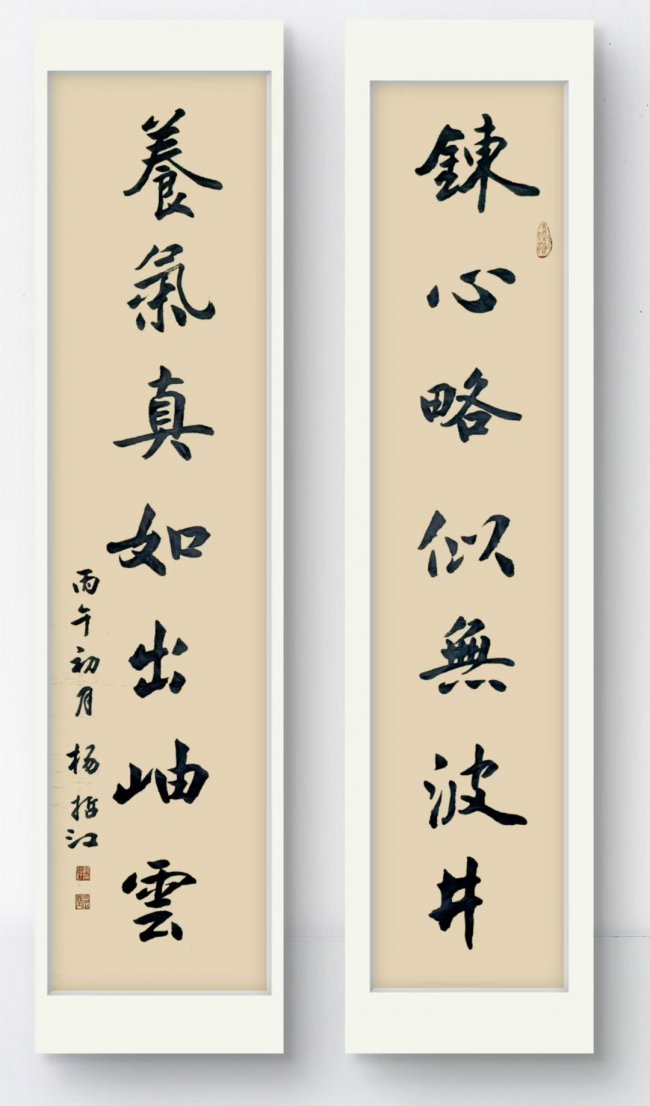 鍊心略似無波井
養氣真如出岫雲
丙午初月 楊哲江